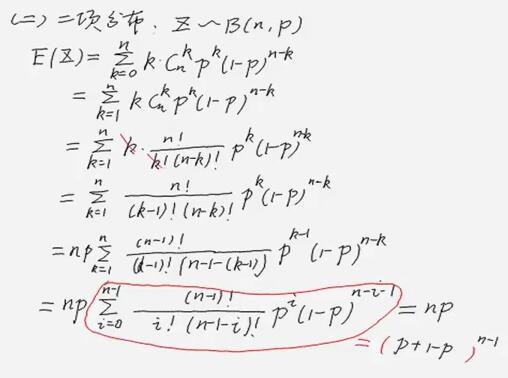 (二) 二项分布. X ~ B(n, p)
E(X) = \sum_{k=0}^{n} k · C_n^k p^k (1-p)^{n-k}
= \sum_{k=1}^{n} k C_n^k p^k (1-p)^{n-k}
= \sum_{k=1}^{n} k · \frac{n!}{k! (n-k)!} p^k (1-p)^{n-k}
= \sum_{k=1}^{n} \frac{n!}{(k-1)! (n-k)!} p^k (1-p)^{n-k}
= np \sum_{k=1}^{n} \frac{(n-1)!}{(k-1)! (n-1-(k-1))} p^{k-1} (1-p)^{n-k}
= np \sum_{i=0}^{n-1} \frac{(n-1)!}{i! (n-1-i)!} p^i (1-p)^{n-i-1} = np
= (p+1-p)^{n-1}